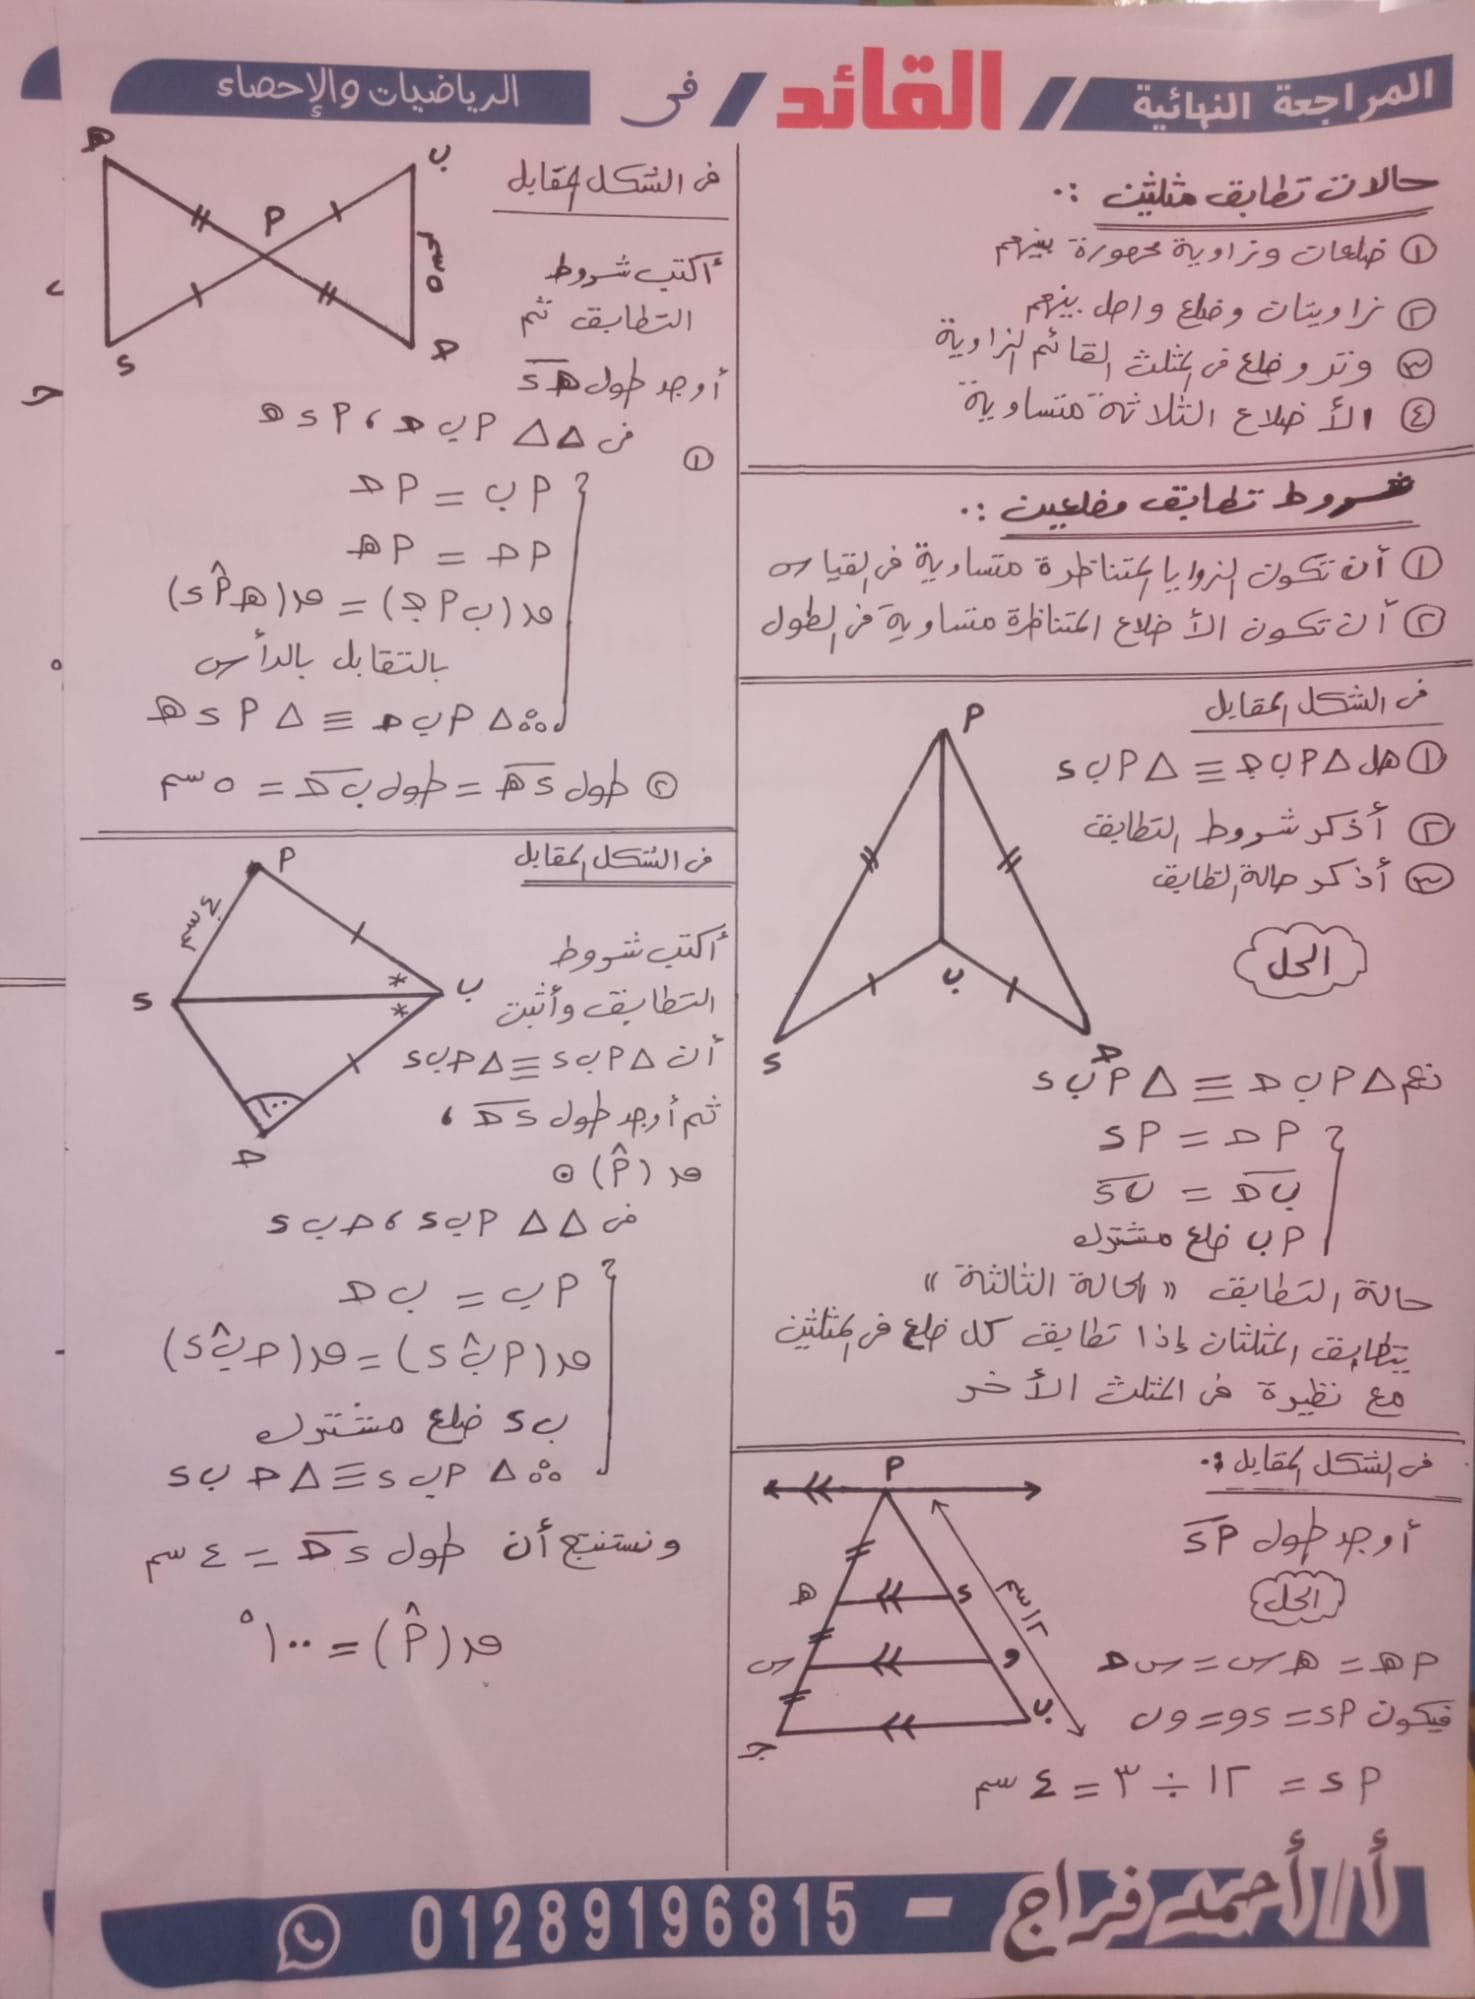 المراجعة النهائية // القائد / فى الرياضيات والإحصاء
حالات تطابق مثلثين :.
① ضلعان وزاوية محصورة بينهم
② زاويتان وضلع واصل بينهم
③ وتر وضلع فى المثلث القائم الزاوية
④ الأضلاع الثلاثة متساوية
شروط تطابق مضلعين :.
① أن تكون الزوايا المتناظرة متساوية فى القياس
② أن تكون الأضلاع المتناظرة متساوية فى الطول
فى الشكل المقابل
① هل △ أ ب ج ≡ △ أ ب د
② أذكر شروط التطابق
③ أذكر حالة التطابق
أ
ب
د
ج
الحل
نعم △ أ ب ج ≡ △ أ ب د
أ ج = أ د
ب ج = ب د
أ ب ضلع مشترك
حالة التطابق « الحالة الثالثة »
يتطابق المثلثان إذا تطابق كل ضلع فى المثلثين
مع نظيرة فى المثلث الأخر
فى الشكل المقابل :.
أوجد طول أ د
الحل
أ
ه
د
س
و
ج
ب
١٢ سم
أ ه = ه س = س ج
فيكون أ د = د و = و ب
أ د = ١٢ ÷ ٣ = ٤ سم
فى الشكل المقابل
ه
ب
أ
٥ سم
د
ج
أكتب شروط
التطابق ثم
أوجد طول ه د
① فى △△ أ ب ج ، أ د ه
أ ب = أ د
أ ج = أ ه
ق (ب أ ج) = ق (ه أ د)
بالتقابل بالرأس
∴ △ أ ب ج ≡ △ أ د ه
② طول د ه = طول ب ج = ٥ سم
فى الشكل المقابل
أ
٤ سم
د
ب
١٠٠
ج
أكتب شروط
التطابق وأثبت
أن △ أ ب د ≡ △ ج ب د
ثم أوجد طول د ج ،
ق (أ)
فى △△ أ ب د ، ج ب د
أ ب = ب ج
ق (أ ب د) = ق (ج ب د)
ب د ضلع مشترك
∴ △ أ ب د ≡ △ ج ب د
ونستنتج أن طول د ج = ٤ سم
ق (أ) = ١٠٠°
أ/أحمد فراج - 01289196815